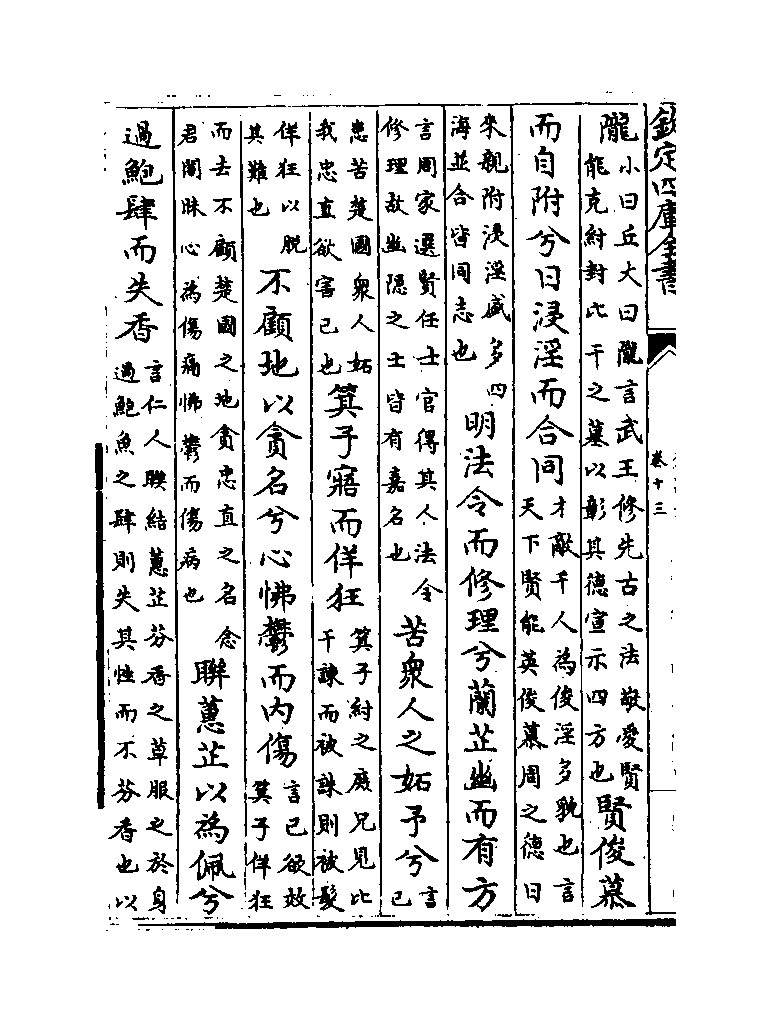 欽定四庫全書
卷十三
隴小曰丘大曰隴言武王修先古之法敬愛賢能克紂封比干之墓以彰其德宣示四方也賢俊慕
而自附兮日浸淫而合同才敵千人為俊淫多貌也言天下賢能英俊慕周之德日
來親附浸淫盛多四海並合皆同志也明法令而修理兮蘭芷幽而有方
言周家選賢任士官得其人法令修理故幽隱之士皆有嘉名也苦衆人之妬予兮言已
患苦楚國衆人妬我忠直欲害己也箕子寤而佯狂箕子紂之庶兄見比干諫而被誅則被髮
佯狂以脱其難也不顧地以貪名兮心怫鬱而内傷言已欲效箕子佯狂
而去不顧楚國之地貪忠直之名念君闇昧心為傷痛怫鬱而傷病也聯蕙芷以為佩兮
過鮑肆而失香言仁人聯結蕙芷芬香之草服之於身過鮑魚之肆則失其性而不芬香也以